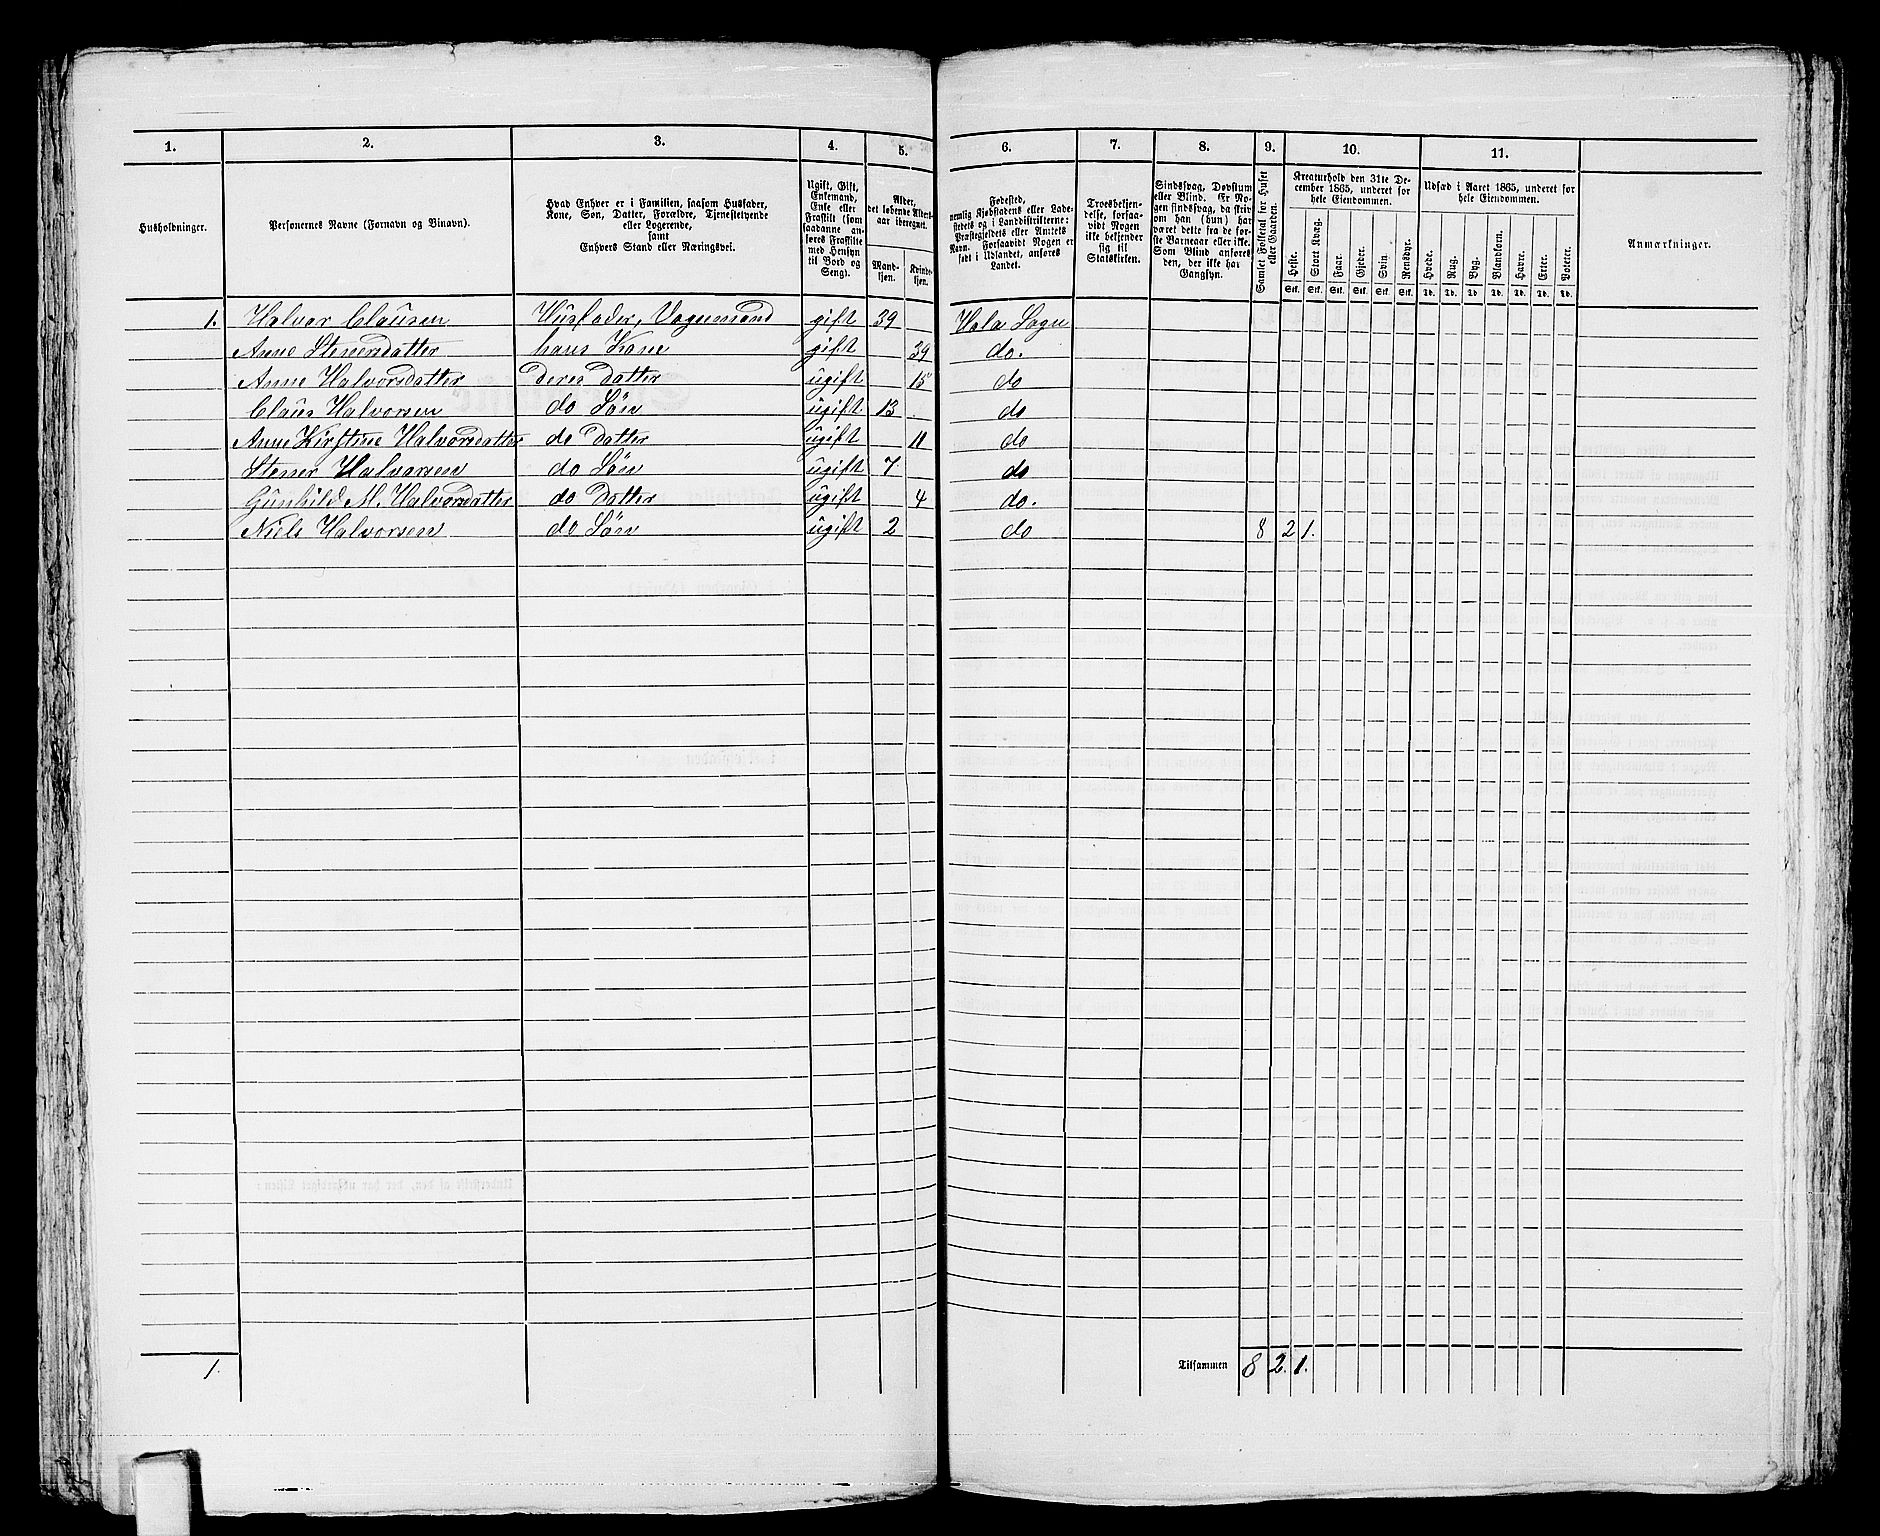 1. 2. 3. 4. 5. 6. 7. 8. 9. 10. 11.
Husholdninger.
Personernes Navne (Fornavn og Binavn).
Hvad Enhver er i Familien, saasom Husfader,
Kone, Søn, Datter, Forældre, Tjenestetyende
eller Logerende,
samt
Enhvers Stand eller Næringsvei.
Ugift, Gift,
Enkemand,
Enke eller
Fraskilt (som
saadanne an-
føres Fraskilte
med Hensyn
til Bord og
Seng).
Alder,
det løbende Alders-
aar iberegnet.
Mand-
kjøn.
Kvinde-
kjøn.
Fødested,
nemlig Kjøbstadens eller Lade-
stedets og i Landdistrikterne:
Præstegjeldets eller Amtets
Navn. Forsaavidt Nogen er
født i Udlandet, anføres
Landet.
Troesbekjen-
delse, forsaa-
vidt Nogen
ikke bekjender
sig til
Statskirken.
Sindssvag, Døvstum
eller Blind. Er No-
gen sindssvag, da skriv
om han (hun) har
været dette fra de før-
ste Barneaar eller ikke.
Som Blind anføres
den, der ikke har
Gangsyn.
Samlet Folketal for Huset
eller Gaarden.
Kreaturhold den 31te De-
cember 1865, underet for
hele Eiendommen.
Heste.
Stort Kvæg.
Faar.
Gjeder.
Svin.
Rensdyr.
Stk. Stk. Stk. Stk. Stk. Stk.
Udsæd i Aaret 1865, underet for
hele Eiendommen.
Hvede.
Rug.
Byg.
Blandkorn.
Havre.
Erter.
Poteter.
Td. Td. Td. Td. Td. Td. Td.
Anmærkninger.
1. Halvor Clausen Husfader, Vognmand gift 39 Hola Sogn
Anne Stenersdatter hans Kone gift 39 do.
Anne Halvorsdatter deres Datter ugift 15 do
Claus Halvorsen do Søn ugift 13 do
Anne Kirstine Halvorsdatter do Datter ugift 11 do
Stener Halvorsen do Søn ugift 7 do
Gunhild M. Halvorsdatter do Datter ugift 4 do.
Niels Halvorsen do Søn ugift 2 do 8 2 1.
1. Tilsammen 8 2. 1.